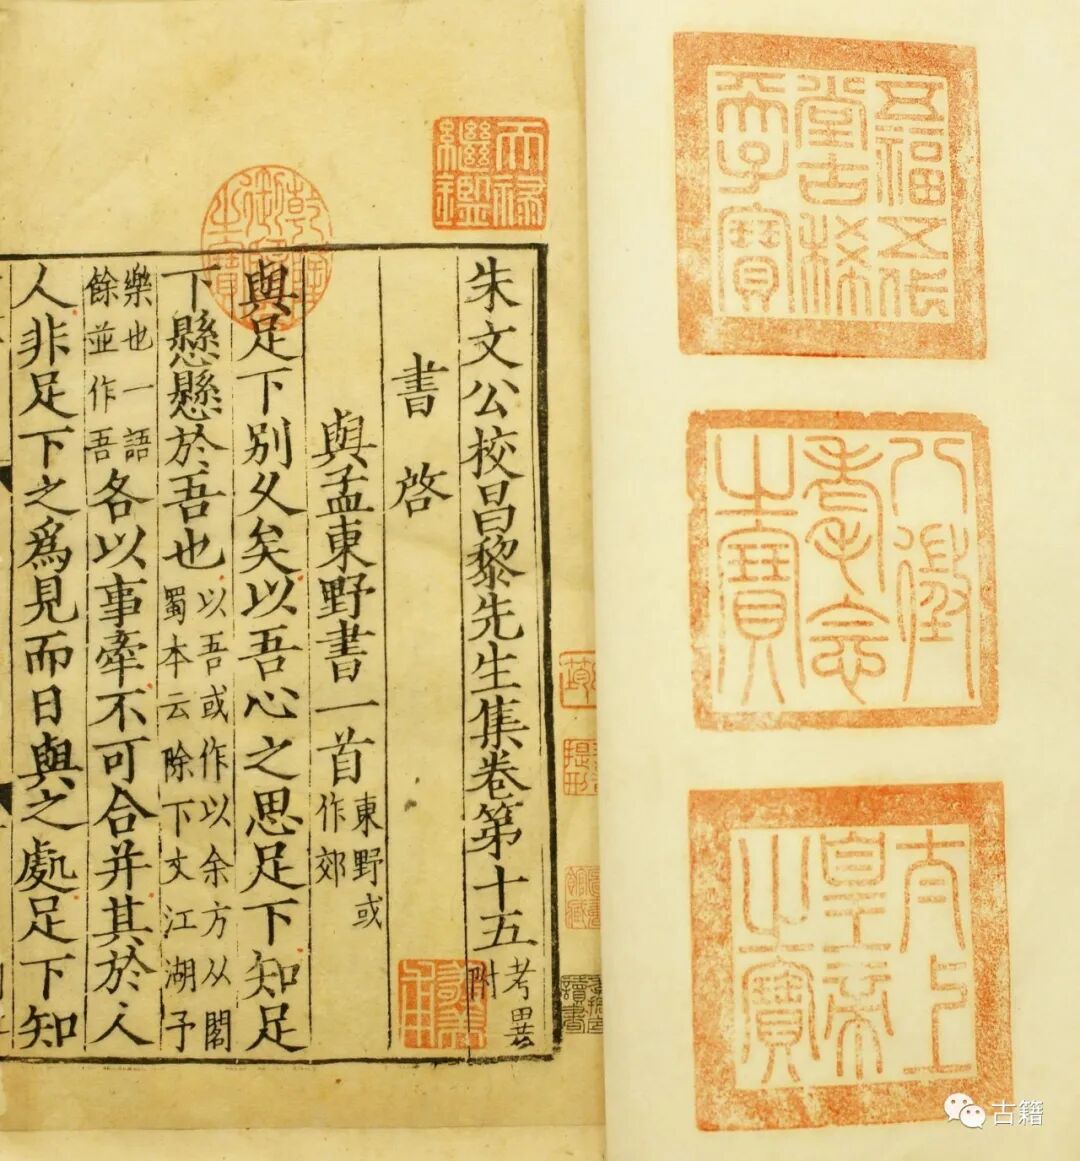 五福五代
堂古稀
天子寶
八徵
耄念
之寶
太上
皇帝
之寶
天祿
繼鑑
乾隆
御覽
之寶
朱文公校昌黎先生集卷第十五考異附
書啓
與孟東野書一首東野或作郊
與足下別久矣以吾心之思足下知足
下懸懸於吾也以吾或作以余方从閣蜀本云除下文江湖予
樂也一語餘並作吾各以事牽不可合并其於人
人非足下之爲見而日與之處足下知
古籍